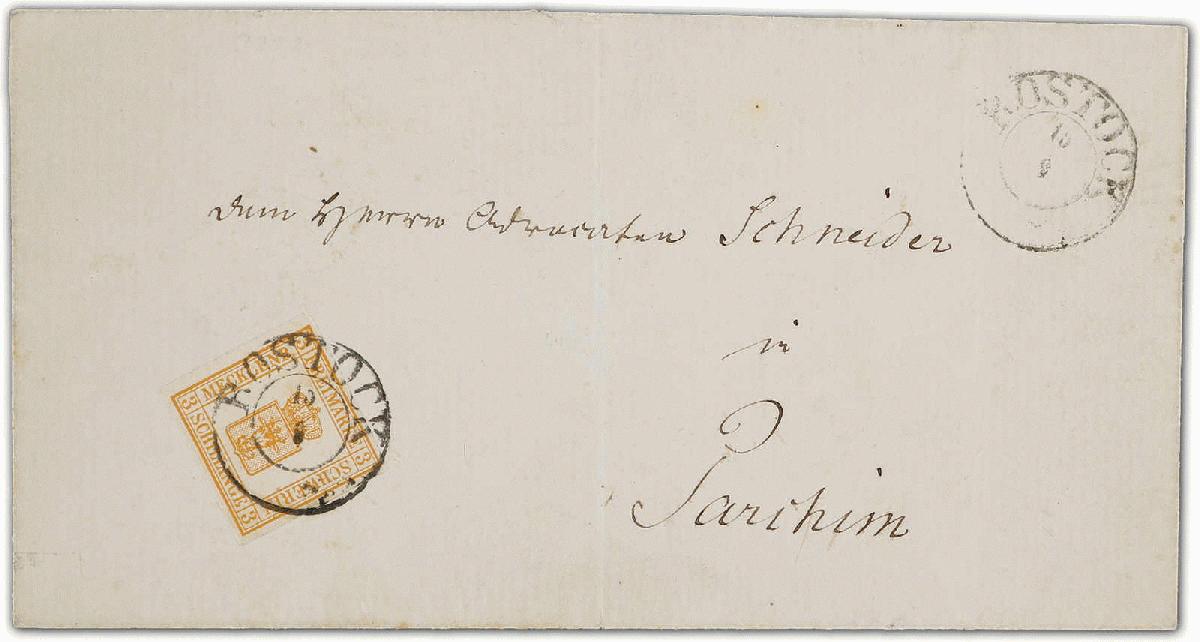 ROSTOCK
dem Herrn Advocaten Schneider
in
Parchim
ROSTOCK
MECKLENB.
SCHWERIN
3 3 3 3